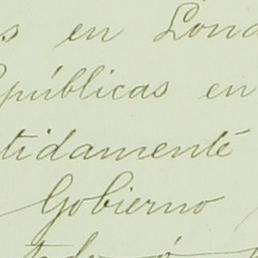 s en Lond
Repúblicas en
tidamente
Gobierno